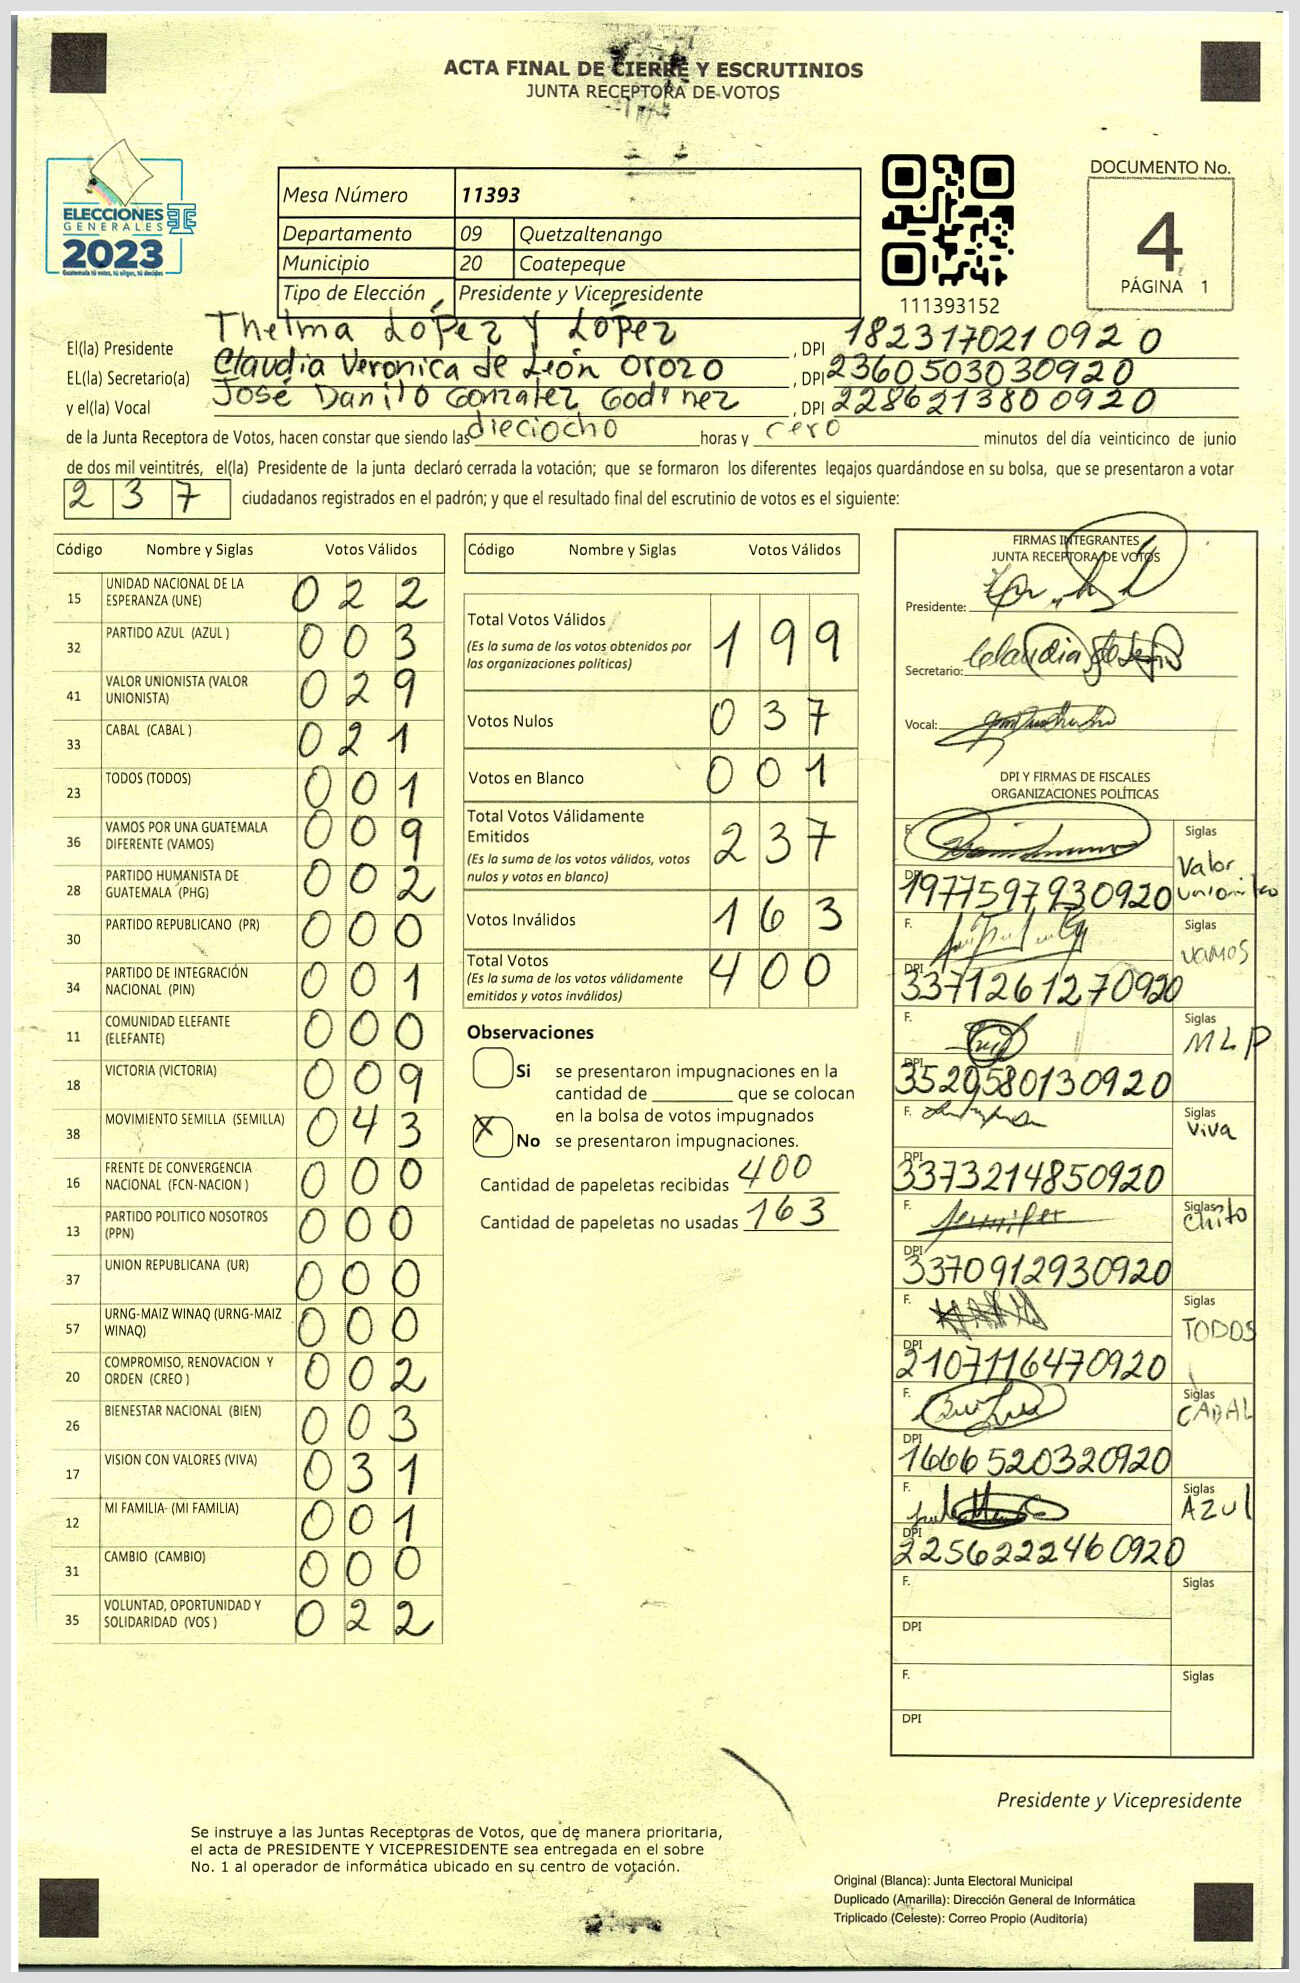 ACTA FINAL DE CIERRE Y ESCRUTINIOS
JUNTA RECEPTORA DE VOTOS
ELECCIONES
GENERALES
2023
Guatemala tú votas, tú eliges, tú decides
Mesa Número 11393
Departamento 09 Quetzaltenango
Municipio 20 Coatepeque
Tipo de Elección Presidente y Vicepresidente
111393152
DOCUMENTO No.
4
PÁGINA 1
El(la) Presidente Thelma López y López , DPI 1823170210920
EL(la) Secretario(a) Claudia Veronica de León Orozo , DPI 2360503030920
y el(la) Vocal José Danilo Gonzalez Godinez , DPI 2286213800920
de la Junta Receptora de Votos, hacen constar que siendo las dieciocho horas y cero minutos del día veinticinco de junio
de dos mil veintitrés, el(la) Presidente de la junta declaró cerrada la votación; que se formaron los diferentes legajos guardándose en su bolsa, que se presentaron a votar
237 ciudadanos registrados en el padrón; y que el resultado final del escrutinio de votos es el siguiente:
Código Nombre y Siglas Votos Válidos
15 UNIDAD NACIONAL DE LA ESPERANZA (UNE) 022
32 PARTIDO AZUL (AZUL ) 003
41 VALOR UNIONISTA (VALOR UNIONISTA) 029
33 CABAL (CABAL ) 021
23 TODOS (TODOS) 001
36 VAMOS POR UNA GUATEMALA DIFERENTE (VAMOS) 009
28 PARTIDO HUMANISTA DE GUATEMALA (PHG) 002
30 PARTIDO REPUBLICANO (PR) 000
34 PARTIDO DE INTEGRACIÓN NACIONAL (PIN) 001
11 COMUNIDAD ELEFANTE (ELEFANTE) 000
18 VICTORIA (VICTORIA) 009
38 MOVIMIENTO SEMILLA (SEMILLA) 043
16 FRENTE DE CONVERGENCIA NACIONAL (FCN-NACION ) 000
13 PARTIDO POLITICO NOSOTROS (PPN) 000
37 UNION REPUBLICANA (UR) 000
57 URNG-MAIZ WINAQ (URNG-MAIZ WINAQ) 000
20 COMPROMISO, RENOVACION Y ORDEN (CREO ) 002
26 BIENESTAR NACIONAL (BIEN) 003
17 VISION CON VALORES (VIVA) 031
12 MI FAMILIA (MI FAMILIA) 001
31 CAMBIO (CAMBIO) 000
35 VOLUNTAD, OPORTUNIDAD Y SOLIDARIDAD (VOS ) 022
Código Nombre y Siglas Votos Válidos
Total Votos Válidos 199
(Es la suma de los votos obtenidos por
las organizaciones políticas)
Votos Nulos 037
Votos en Blanco 001
Total Votos Válidamente
Emitidos 237
(Es la suma de los votos válidos, votos
nulos y votos en blanco)
Votos Inválidos 163
Total Votos 400
(Es la suma de los votos válidamente
emitidos y votos inválidos)
Observaciones
Si se presentaron impugnaciones en la
cantidad de ________ que se colocan
en la bolsa de votos impugnados
X No se presentaron impugnaciones.
Cantidad de papeletas recibidas 400
Cantidad de papeletas no usadas 163
FIRMAS INTEGRANTES
JUNTA RECEPTORA DE VOTOS
Presidente:
Secretario:
Vocal:
DPI Y FIRMAS DE FISCALES
ORGANIZACIONES POLÍTICAS
F. Siglas Valor unionista
DPI 1977597930920
F. Siglas VAMOS
DPI 3371261270920
F. Siglas MLP
DPI 3520580130920
F. Siglas Viva
DPI 3373214850920
F. Jennifer Siglas Chito
DPI 3370912930920
F. Siglas TODOS
DPI 2107116470920
F. Siglas CABAL
DPI 1666520320920
F. Siglas AZUL
DPI 2256222460920
F. Siglas
DPI
F. Siglas
DPI
Presidente y Vicepresidente
Se instruye a las Juntas Receptoras de Votos, que de manera prioritaria,
el acta de PRESIDENTE Y VICEPRESIDENTE sea entregada en el sobre
No. 1 al operador de informática ubicado en su centro de votación.
Original (Blanca): Junta Electoral Municipal
Duplicado (Amarilla): Dirección General de Informática
Triplicado (Celeste): Correo Propio (Auditoría)